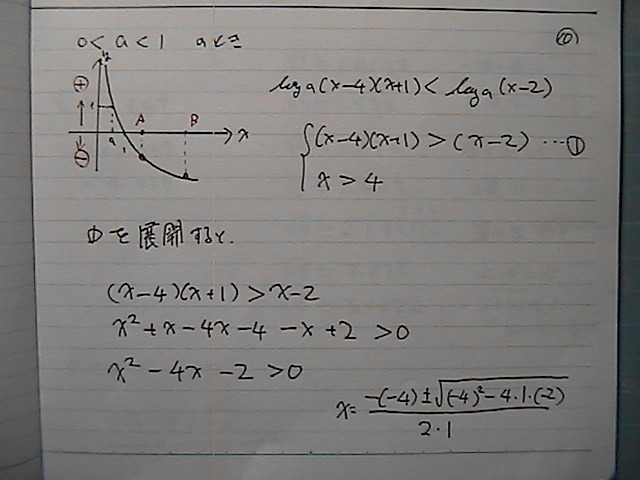 0<a<1 aくさ
⑩
y
⊕
1
A
B
x
a
1
⊖
log a(x-4)(x+1) < log a(x-2)
(x-4)(x+1) > (x-2) …①
x > 4
①を展開すると.
(x-4)(x+1) > x-2
x²+x-4x-4-x+2 >0
x²-4x-2 >0
x= -(-4)±√(-4)²-4・1・(-2) / 2・1